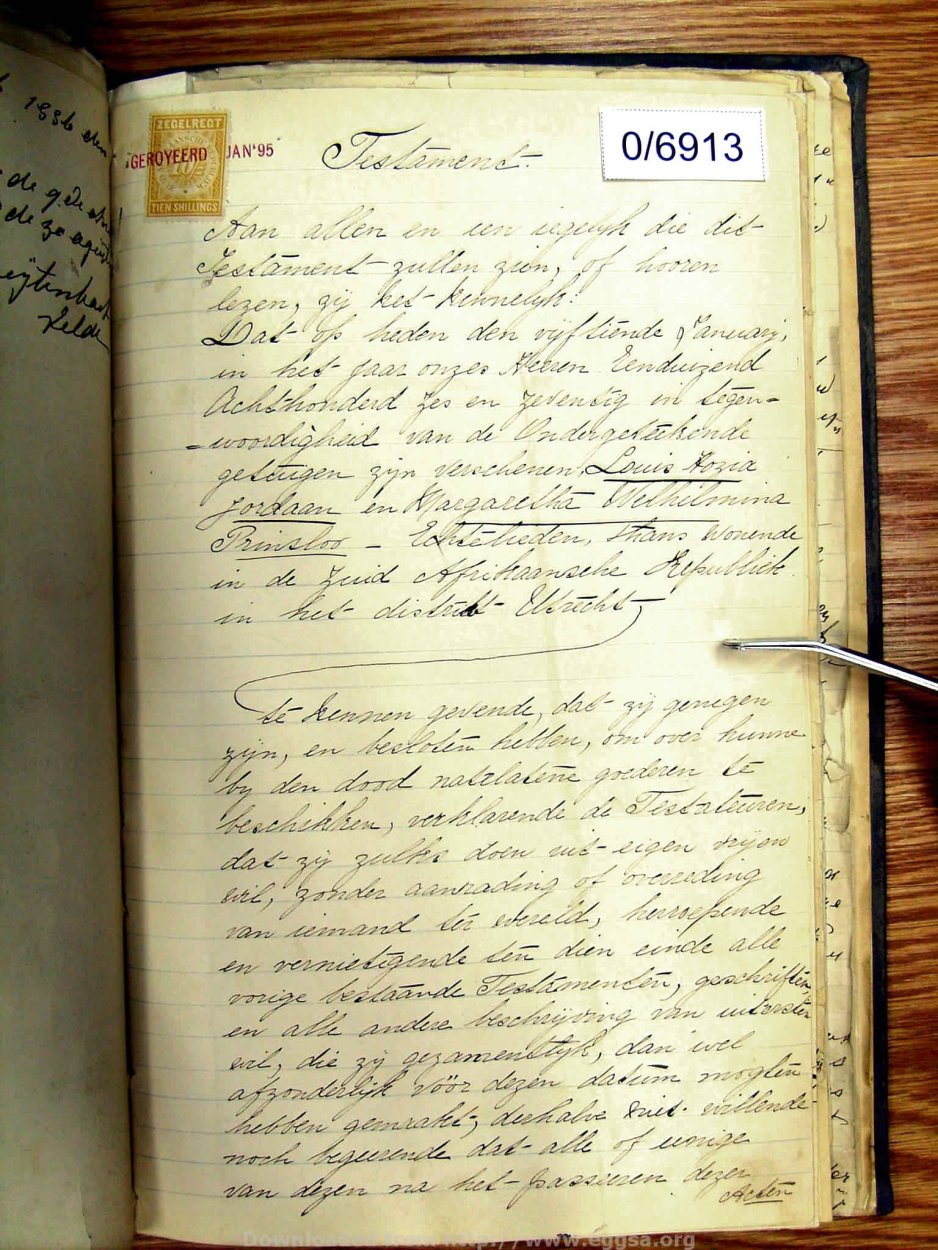 1886
ZEGELREGT
GEROYEERD JAN'95
TIEN SHILLINGS
0/6913
Testament.
Aan allen en een iegelyk die dit
Testament zullen zien, of hooren
lezen, zij het kennelyk:
Dat op heden den vijftiende January,
in het jaar onzes Heeren Eenduizend
Achthonderd Zes en Zeventig in tegen=
=woordigheid van de Ondergeteekende
getuigen zijn verschenen, Louis Hozia
Jordaan en Margaretha Welhilmina
Prinsloo - Echtelieden, thans Wonende
in de Zuid Afrikaansche Republiek
in het district Utrecht
te kennen gevende, dat zij genegen
zijn, en besloten hebben, om over hunne
by den dood natelatene goederen te
beschikken, verklarende de Testateuren,
dat zij zulks doen uit eigen vrijen
wil, zonder aanrading of overreding
van iemand ter wereld, herroepende
en vernietigende ten dien einde alle
vorige bestaande Testamenten, geschriften,
en alle andere beschrijving van uitersten
wil, die zij gezamentlyk, dan wel
afzonderlijk vóór dezen datum mogten
hebben gemaakt, derhalve niet willende
noch begeerende dat alle of eenige
van dezen na het passeren dezer
Acten
Downloaded from http://www.eggsa.org